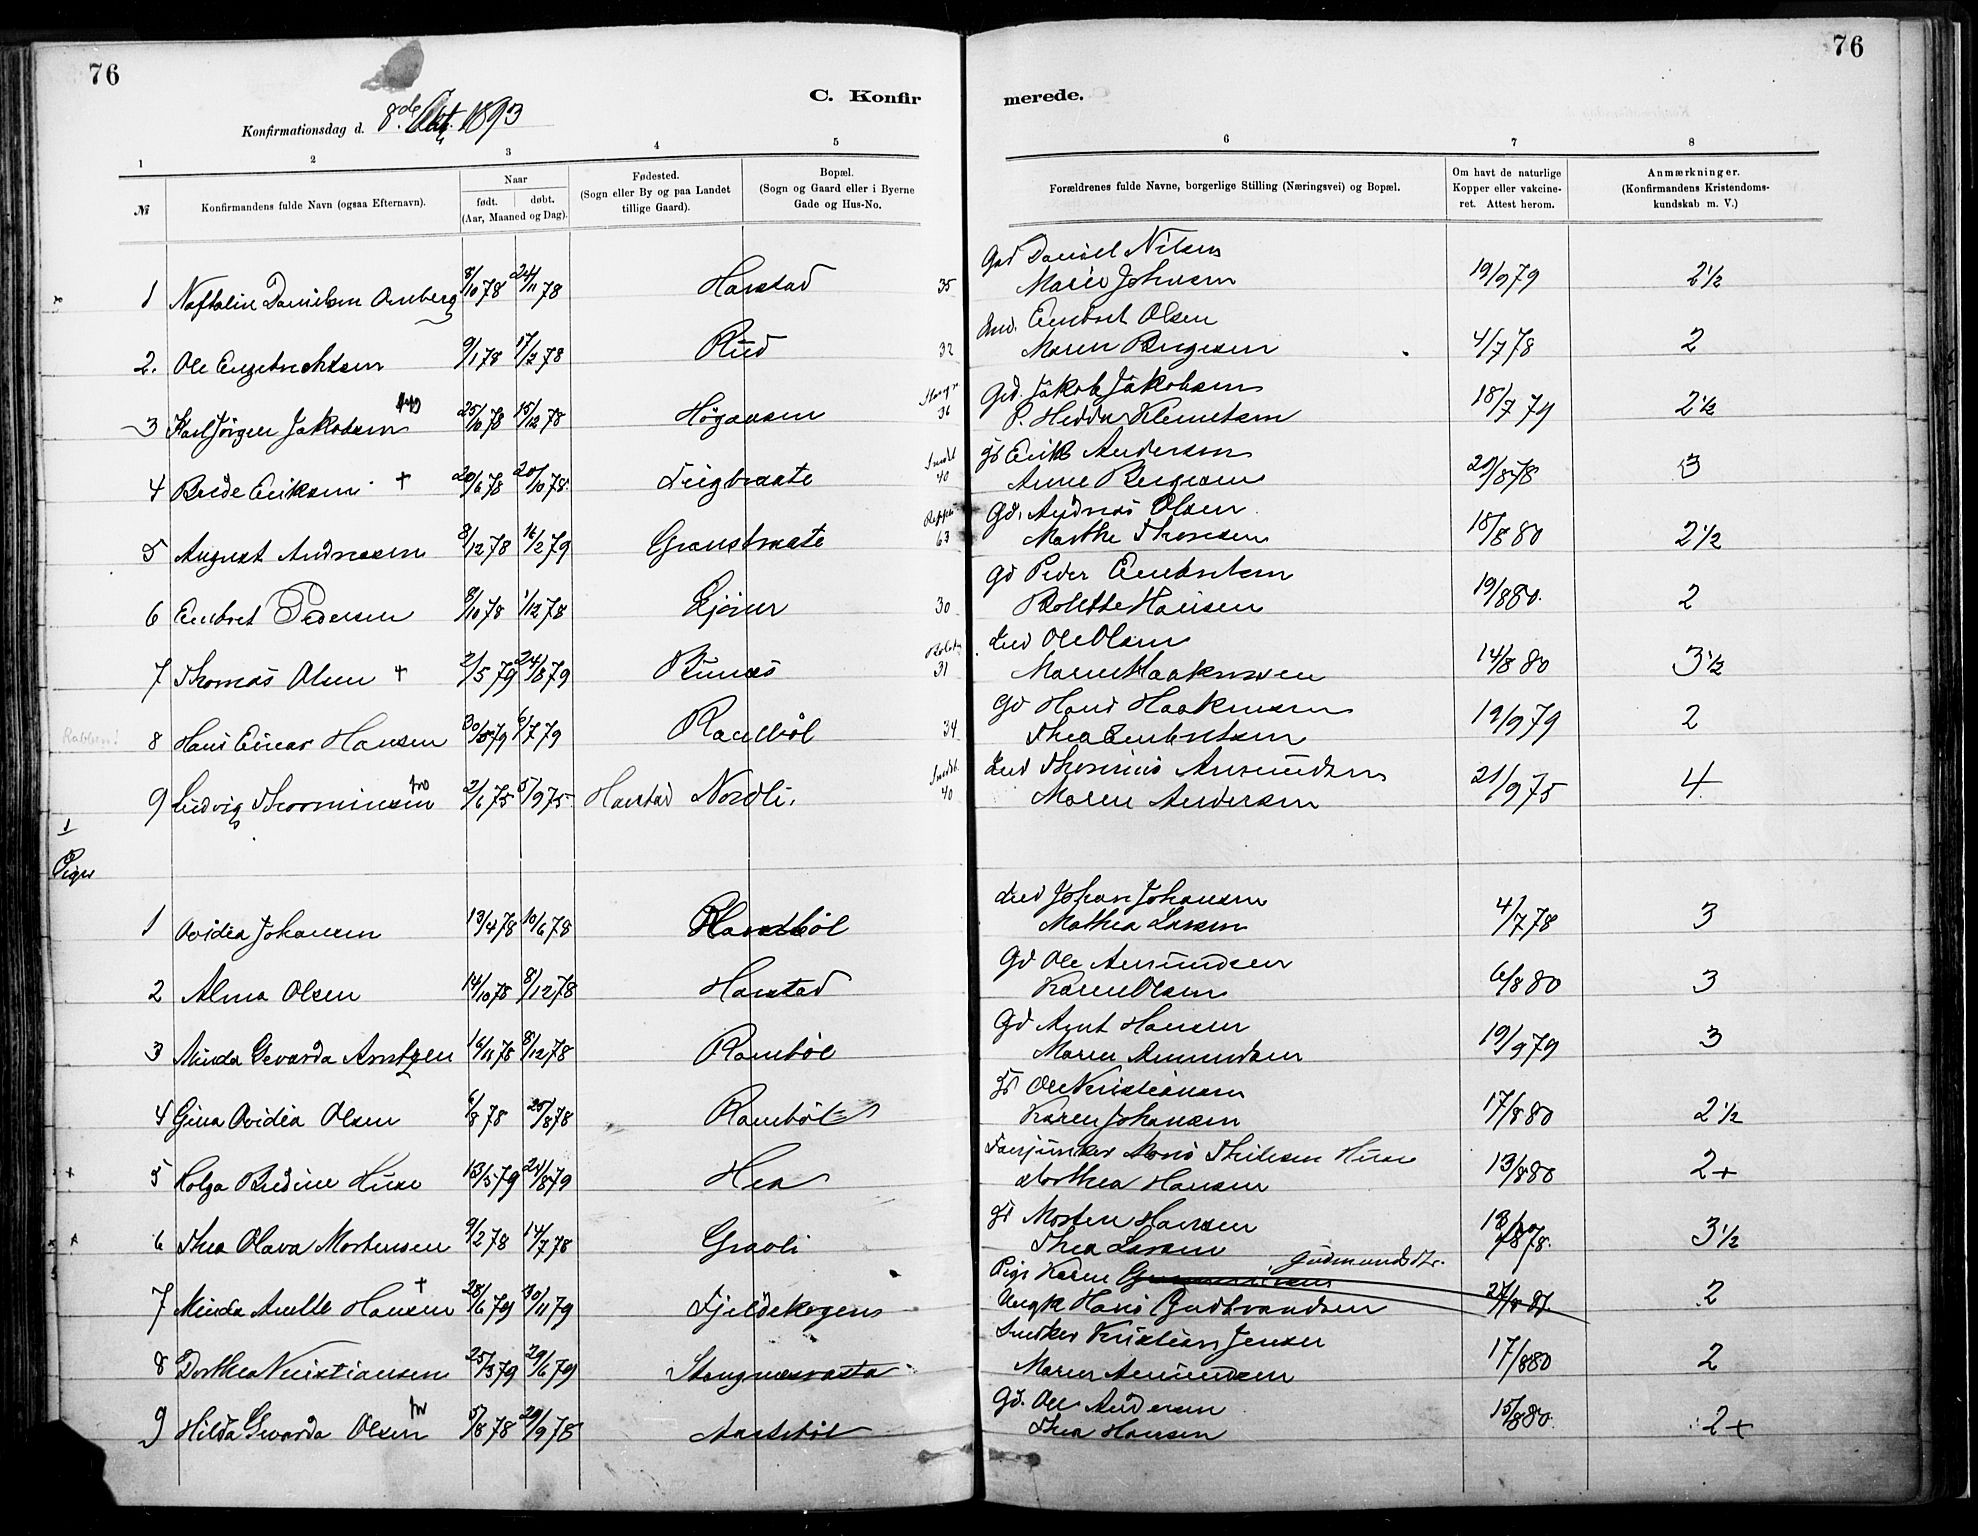 76
C. Konfir
merede.
76
Konfirmationsdag d. 8de Okt. 1893
1 2 3 4 5 6 7 8
№
Konfirmandens fulde Navn (ogsaa Efternavn).
Naar
født. døbt.
(Aar, Maaned og Dag).
Fødested.
(Sogn eller By og paa Landet
tillige Gaard).
Bopæl.
(Sogn og Gaard eller i Byerne
Gade og Hus-No.
Forældrenes fulde Navne, borgerlige Stilling (Næringsvei) og Bopæl.
Om havt de naturlige
Kopper eller vakcine-
ret. Attest herom.
Anmærkninger.
(Konfirmandens Kristendoms-
kundskab m. V.)
Gd Daniel Nilsen
1 Naftalin Danielsen 8/10 78 24/11 78 Harstad 35 Marie Johnsen 19/9 79 2 1/2
Ind. Embret Olsen
2. Ole Engebrektsen 9/1 78 17/2 78 Rud 32 Maren 4/7 78 2
Gd. Jakob Jakobsen
3 Karl Jörgen Jakobsen 25/10 78 15/12 78 36 P. Hedda Klemetsen 18/7 79 2 1/2
Erik Andersen
4 Brede Eriksen + 20/6 78 20/10 78. 40 Anne 20/8 78 3
Gd. Andreas Olsen
5 August Andreasen 8/12 78 16/2 79 63 Marthe Thoresen 18/8 80 2 1/2
Gd Peder Embretsen
6 Embret Pedersen 8/10 78 1/12 78 30 Bolette Hansen 19/8 80. 2
Ind Ole Olsen
7 Thomas Olsen + 2/5 79 24/8 79 31 Maren Haakensen 14/8 80 3 1/2
Gd Hans Haakensen
8 Hans Einar Hansen 30/5 79 6/7 79 Rambøl 34 Thea Embretsen 19/9 79 2
Ind Thorinius Amundsen
9 Ludvig 2/6 75 5/9 75 Harstad Nordli. 40 Maren Andersen 21/9 75 4
Piger
Ind Johan Johansen
1 Ovidia Johansen 13/4 78 10/6 78 Rambøl Mathea Larsen 4/7 78 3
Gd Ole Amundsen
2 Alma Olsen 14/10 78 8/12 78 Harstad Karen Olsen 6/8 80 3
Gd Arnt Hansen
3 Minda Gevarda Arntzen 16/11 78 8/12 78 Rambøl Maren Amundsen 19/9 79 3
Ole Kristiansen
4 Gina Ovidia Olsen 6/8 78 25/8 78 Rambøl Karen Johansen 17/8 80 2 1/2
Fanejunker
5 Holga Bredine Huse 13/5 79 24/8 79 Hea Dorthea Hansen 13/8 80 2+
Morten Hansen
6 Thea Olava Mortensen 9/2 78 14/7 78 Graoli Thea Larsen 3 1/2
Pige Karen Gudmundsdtr.
7 Minda Anette Hansen + 28/6 79 30/11 79 Fjeldskogen Ungk Hans Gudbrandsen 27/8 87 2
Snedker Kristian Jensen
8 Dorthea Kristiansen 25/3 79 29/6 79 Maren Amundsen 17/8 80 2
Gd. Ole Andersen
9 Hilda Gevarda Olsen 5/8 78 29/9 78 Thea Hansen 15/8 80. 2+